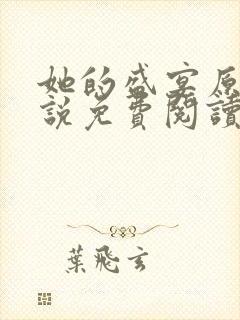 她的盛宴原
說免費閱讀
葉飛玄